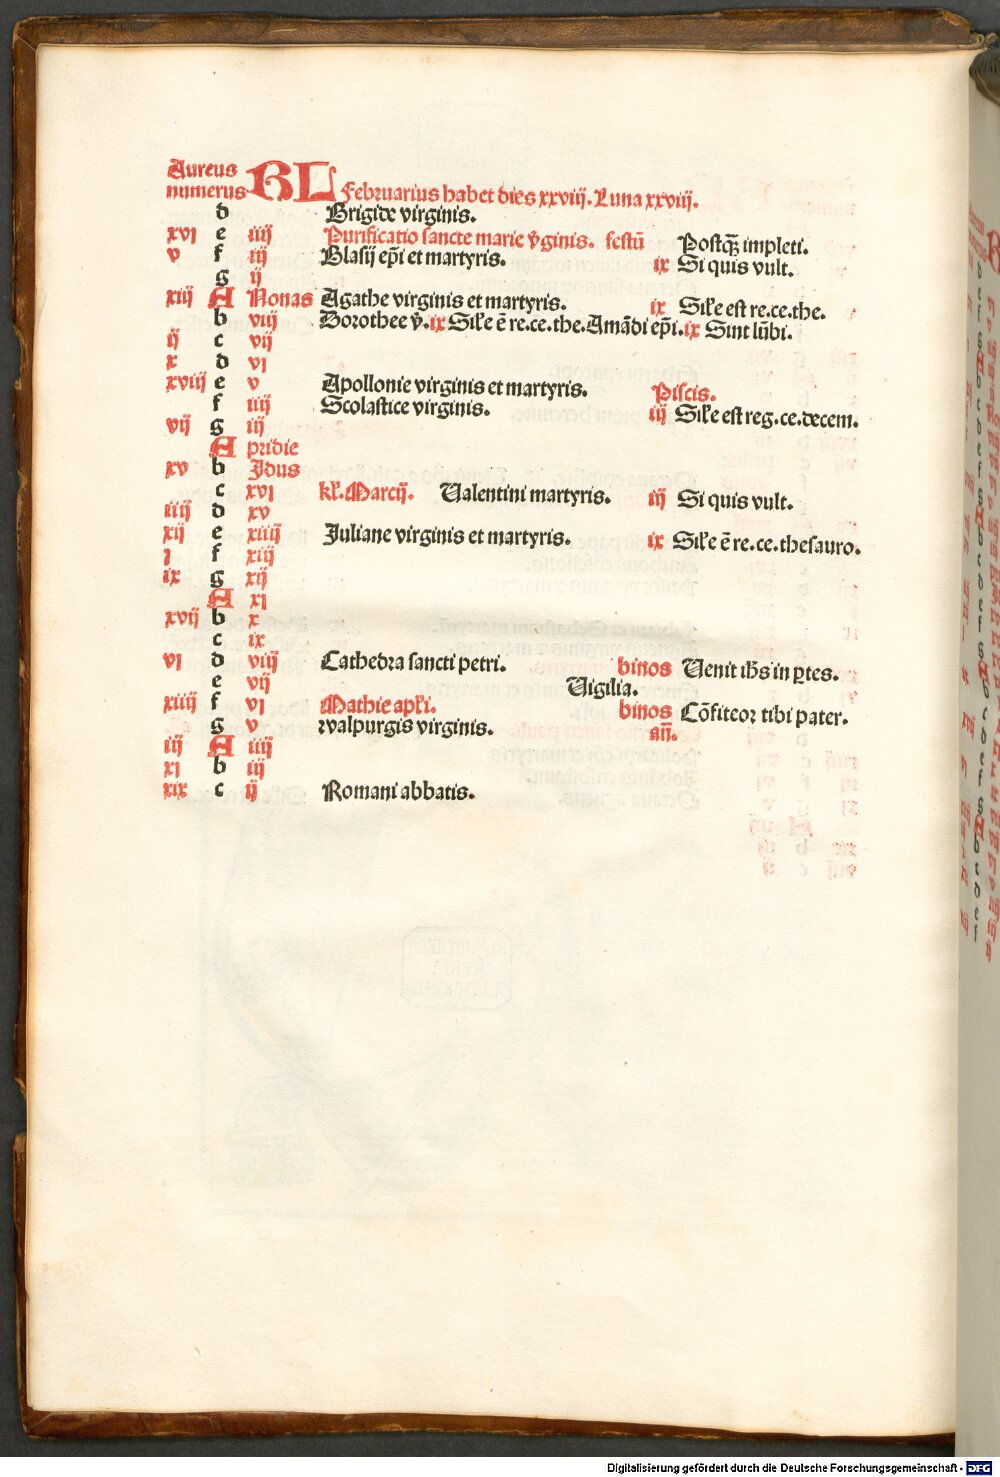 Aureus
numerus KL Februarius habet dies xxviij. Luna xxviij.
d Brigide virginis.
xvj e iiij Purificatio sancte marie v̄ginis. festū Postq̄ȝ impleti.
v f iij Blasij ep̄i et martyris. ix Si quis vult.
g ij
xiij A Nonas Agathe virginis et martyris. ix Sil'e est re.ce.the.
b viij Dorothee v̄. ix Sil'e ē re.ce.the. Amādi ep̄i. ix Sint lūbi.
ij c vij
x d vj
xviij e v Apollonie virginis et martyris. Piscis.
f iiij Scolastice virginis. iij Sil'e est reg.ce.decem.
vij g iij
A pridie
xv b Idus
c xvj kl'. Marcij. Valentini martyris. iij Si quis vult.
iiij d xv
xij e xiiij Juliane virginis et martyris. ix Sil'e ē re.ce.thesauro.
j f xiij
ix g xij
A xj
xvij b x
c ix
vj d viij Cathedra sancti petri. binos Venit ih̄s in ꝑtes.
e vij Vigilia.
xiiij f vj Mathie apl'i. binos Cōfiteor tibi pater.
g v walpurgis virginis. añ.
iij A iiij
xj b iij
xix c ij Romani abbatis.
Digitalisierung gefördert durch die Deutsche Forschungsgemeinschaft - DFG